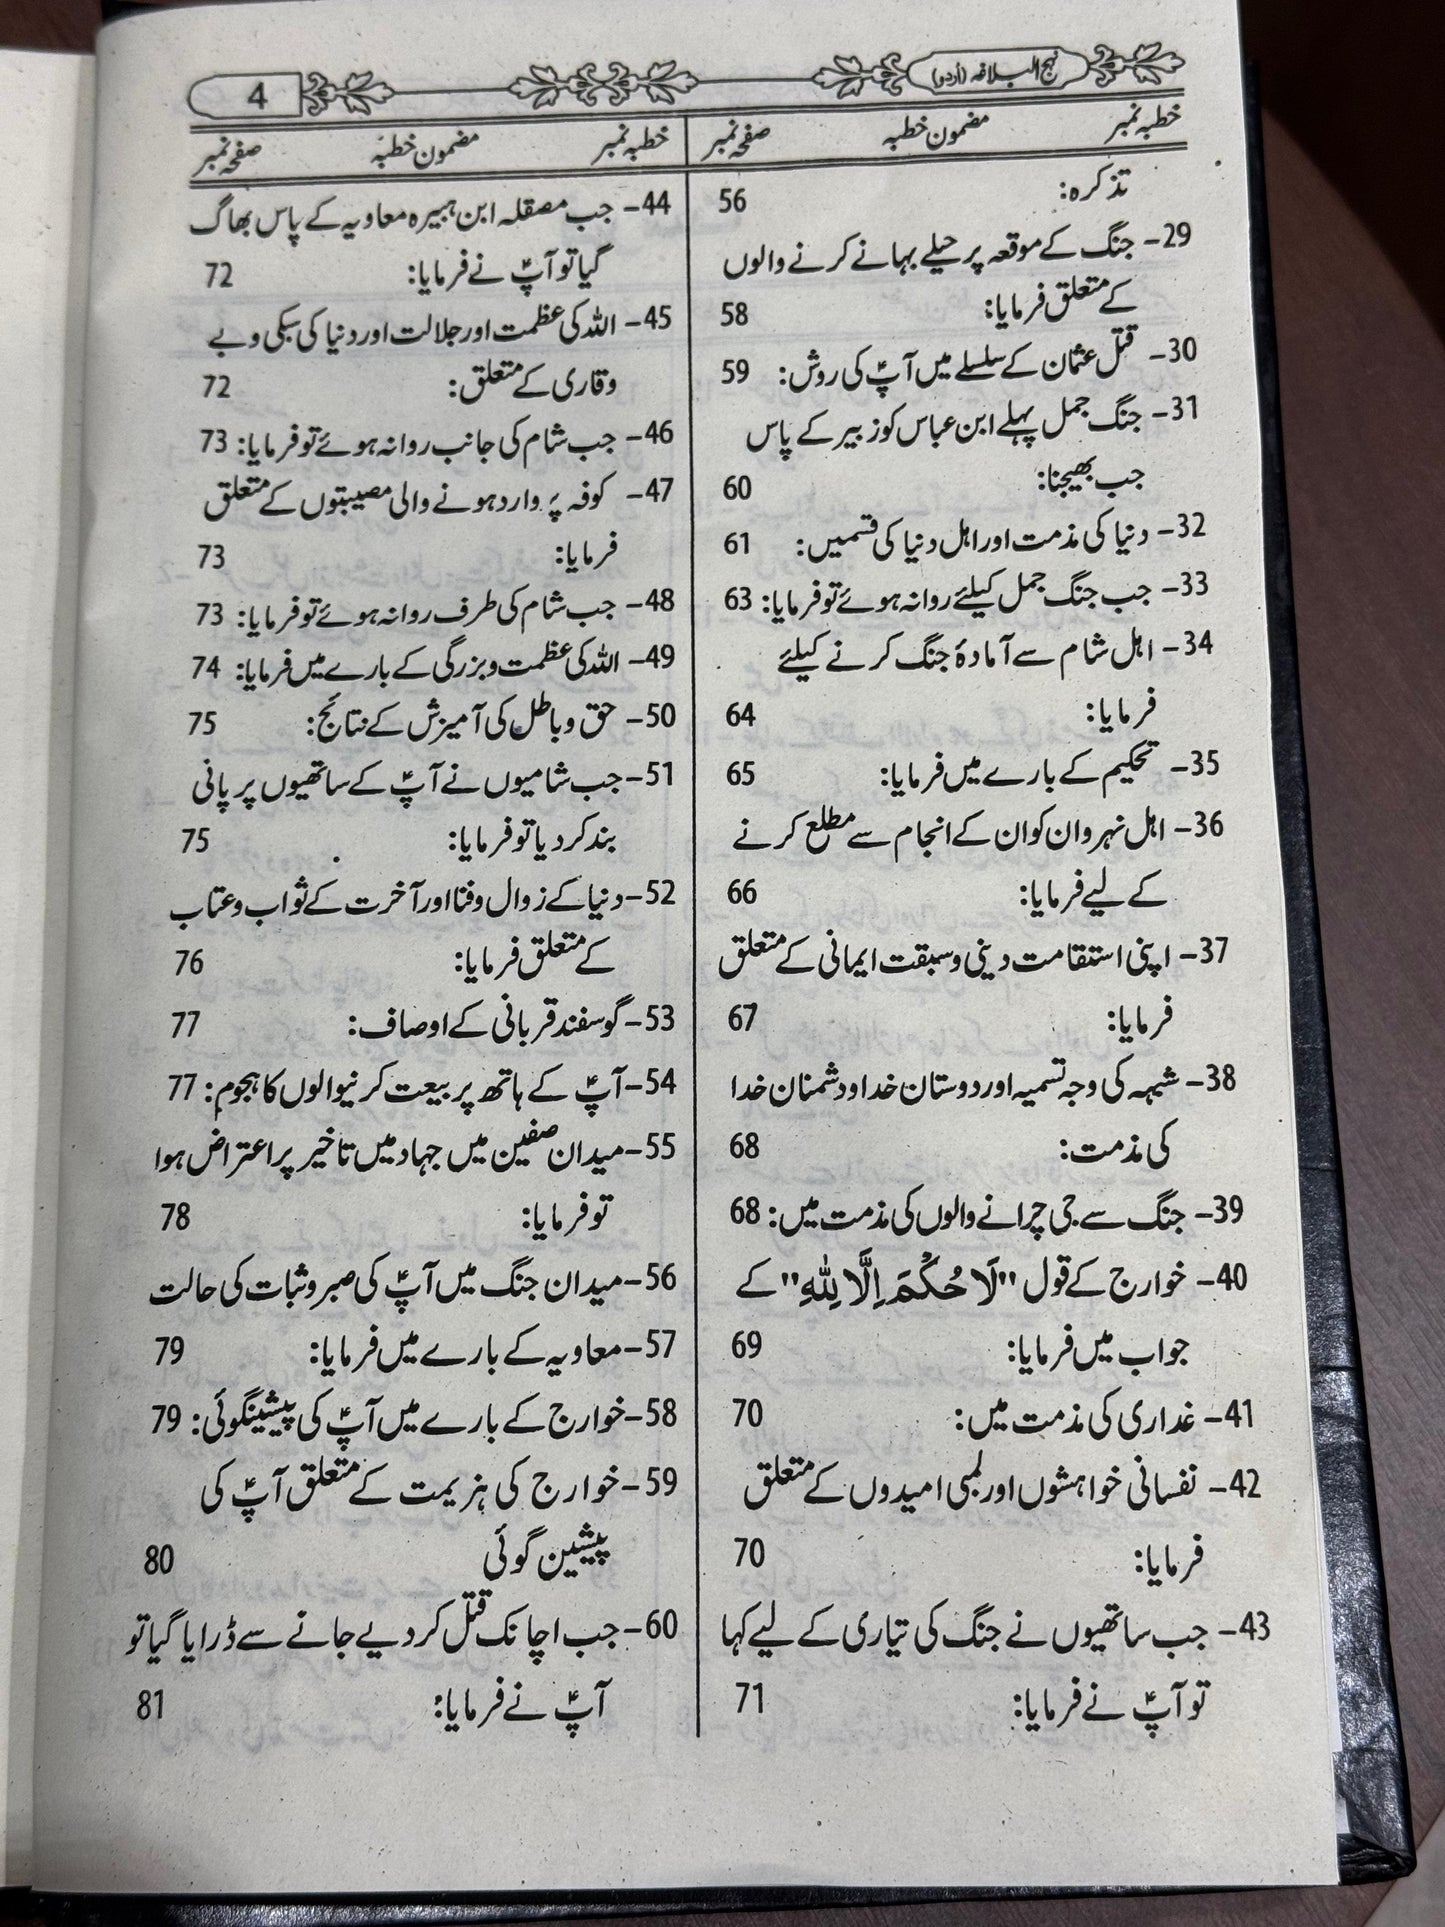 نہج البلاغہ (اُردو)
4
خطبہ نمبر مضمون خطبہ صفحہ نمبر
تذکرہ: 56
29- جنگ کے موقعہ پر حیلے بہانے کرنے والوں
کے متعلق فرمایا: 58
30- قتل عثمان کے سلسلے میں آپؑ کی روش: 59
31- جنگ جمل پہلے ابن عباس کو زبیر کے پاس
جب بھیجنا: 60
32- دنیا کی مذمت اور اہل دنیا کی قسمیں: 61
33- جب جنگ جمل کیلئے روانہ ہوئے تو فرمایا: 63
34- اہل شام سے آمادۂ جنگ کرنے کیلئے
فرمایا: 64
35- تحکیم کے بارے میں فرمایا: 65
36- اہل نہروان کو ان کے انجام سے مطلع کرنے
کے لیے فرمایا: 66
37- اپنی استقامت دینی و سبقت ایمانی کے متعلق
فرمایا: 67
38- شبہہ کی وجہ تسمیہ اور دوستان خدا و دشمنان خدا
کی مذمت: 68
39- جنگ سے جی چرانے والوں کی مذمت میں: 68
40- خوارج کے قول "لَا حُکْمَ اِلَّا لِلّٰہِ" کے
جواب میں فرمایا: 69
41- غداری کی مذمت میں: 70
42- نفسانی خواہشوں اور لمبی امیدوں کے متعلق
فرمایا: 70
43- جب ساتھیوں نے جنگ کی تیاری کے لیے کہا
تو آپؑ نے فرمایا: 71
خطبہ نمبر مضمون خطبہ صفحہ نمبر
44- جب مصقلہ ابن ہبیرہ معاویہ کے پاس بھاگ
گیا تو آپؑ نے فرمایا: 72
45- اللہ کی عظمت اور جلالت اور دنیا کی سبکی و بے
وقاری کے متعلق: 72
46- جب شام کی جانب روانہ ہوئے تو فرمایا: 73
47- کوفہ پر وارد ہونے والی مصیبتوں کے متعلق
فرمایا: 73
48- جب شام کی طرف روانہ ہوئے تو فرمایا: 73
49- اللہ کی عظمت و بزرگی کے بارے میں فرمایا: 74
50- حق و باطل کی آمیزش کے نتائج: 75
51- جب شامیوں نے آپؑ کے ساتھیوں پر پانی
بند کر دیا تو فرمایا: 75
52- دنیا کے زوال و فنا اور آخرت کے ثواب و عتاب
کے متعلق فرمایا: 76
53- گوسفند قربانی کے اوصاف: 77
54- آپؑ کے ہاتھ پر بیعت کرنیوالوں کا ہجوم: 77
55- میدان صفین میں جہاد میں تاخیر پر اعتراض ہوا
تو فرمایا: 78
56- میدان جنگ میں آپؑ کی صبر و ثبات کی حالت
57- معاویہ کے بارے میں فرمایا: 79
58- خوارج کے بارے میں آپؑ کی پیشینگوئی: 79
59- خوارج کی ہزیمت کے متعلق آپؑ کی
پیشین گوئی 80
60- جب اچانک قتل کر دیے جانے سے ڈرایا گیا تو
آپؑ نے فرمایا: 81